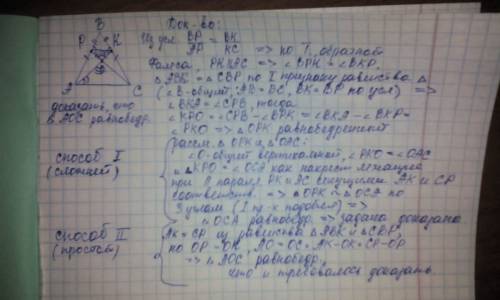 B
P K
O
A C
Док-во:
Из усл BP/AP = BK/KC => по Т. обратной
Фалеса, PK∥AC => ∠BPK = ∠BKP,
△ABK = △CBP по I признаку равенства △
(∠B-общий, AB = BC, BK = BP по усл) =>
∠BKA = ∠CPB, тогда
∠KPO = ∠CPB - ∠BPK = ∠BKA - ∠BKP =
∠PKO => △OPK равнобедренный
доказать, что
△ AOC равнобедр.
способ I
(сложный)
рассм. △OPK и △OAC:
∠O-общий вертикальный, ∠PKO = ∠OAC
и ∠KPO = ∠OCA как накрест лежащие
при паралел. PK и AC секущими AK и CP
соответств. => △OPK ~ △OCA по
2 углам (I пр-к подобия) =>
△OCA равнобедр. => задача доказана
способ II
(простой)
AK = CP из равенства △ABK и △CBP,
но OP = OK, AO = OC = AK-OK = CP-OP
=> △AOC равнобедр,
что и требовалось доказать.